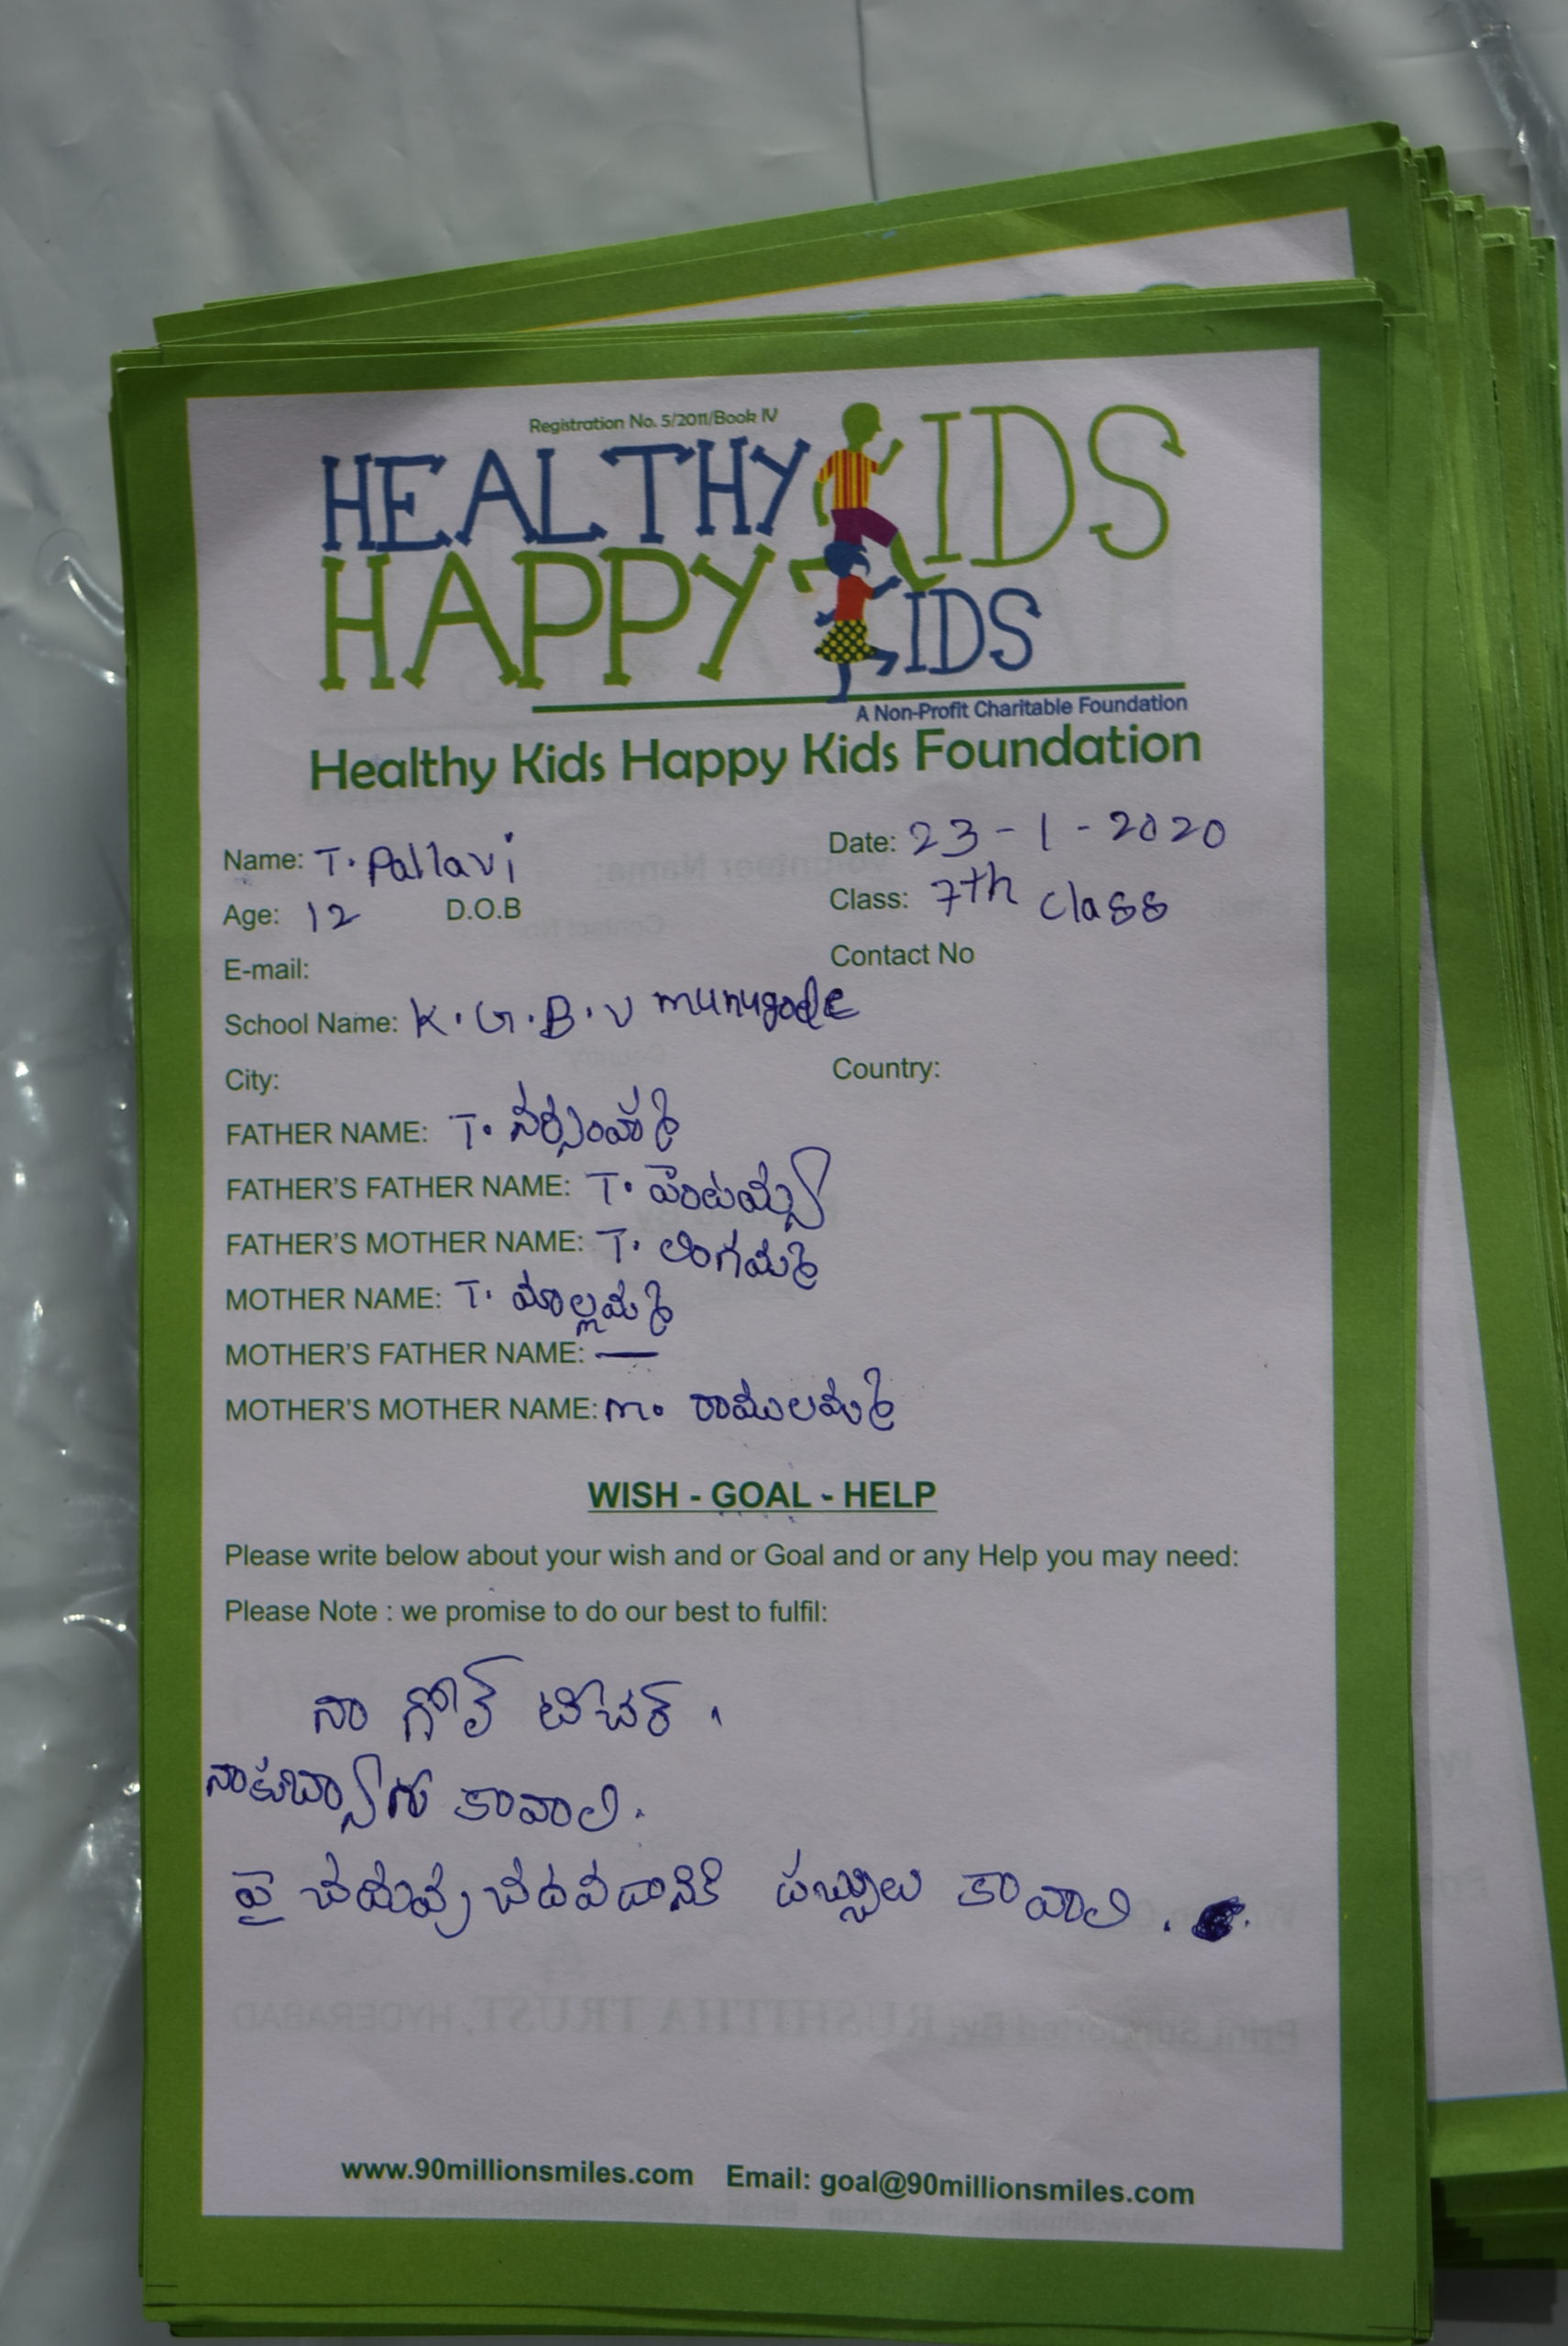 Registration No. 5/2011/Book IV
HEALTHY KIDS
HAPPY KIDS
A Non-Profit Charitable Foundation
Healthy Kids Happy Kids Foundation
Name: T. Pallavi Date: 23-1-2020
Age: 12 D.O.B Class: 7th class
E-mail: Contact No
School Name: K.G.B.V munugode
City: Country:
FATHER NAME: T. నర్సింహ్మ
FATHER'S FATHER NAME: T. పెంటయ్య
FATHER'S MOTHER NAME: T. లింగమ్మ
MOTHER NAME: T. మాల్లమ్మ
MOTHER'S FATHER NAME: —
MOTHER'S MOTHER NAME: m. రాములమ్మ
WISH - GOAL - HELP
Please write below about your wish and or Goal and or any Help you may need:
Please Note : we promise to do our best to fulfil:
నా గోల్ టిచర్.
నాకు బ్యాగు కావాలి.
పై చదువు చదవడానికి డబ్బులు కావాలి.
www.90millionsmiles.com Email: goal@90millionsmiles.com